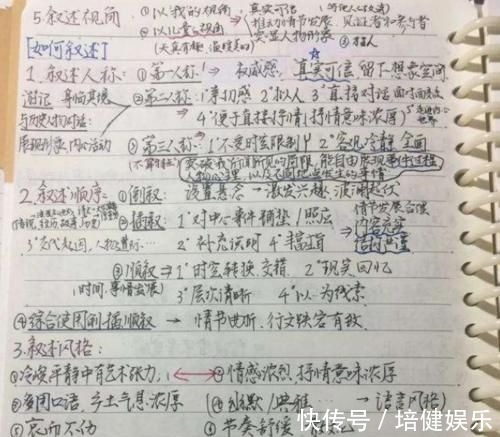 5.叙述视角 ①以我的视角 真实可信
②以儿童视角 推动情节发展 见证者和参与者
(天真有趣 温馨美好) 突显人物形象
[如何叙述]
1.叙述人称: ①第一人称 → 权威感, 真实可信, 留下想象空间
游记 身临其境 ②第二人称: 1°亲切感 2°拟人 3°直接对话
与历史人物对话: 4°便于直接抒情(抒情意味浓厚)
展现形象,内心活动 ③第三人称: 1°不受时空限制 2°客观冷静 全面
突破 所闻所见的局限, 能自由展现事件过程
人物心理, 以及不同地点发生的事情
2.叙述顺序: ①倒叙: 设置悬念→激发兴趣, 波澜起伏
②插叙: 1°对中心事件铺垫/照应 情节发展合理
3°交代起因,人物 2°补充说明 4°丰富 内容充实
结构严谨
③顺叙 ⇒ 1°时空转换,交错 2°现实,回忆
(时间,事情发展) 3°层次清晰 4°以一为线索
④综合使用倒插顺叙 → 情节曲折,行文跌宕有致.
3.叙述风格:
①冷峻平静中有艺术张力, ②情感浓烈,抒情意味浓厚
③多用口语,乡土气息浓厚 ④幽默/典雅… → 语言风格)
⑤哀而不伤 ⑥节奏舒缓
快传号 / 培健娱乐